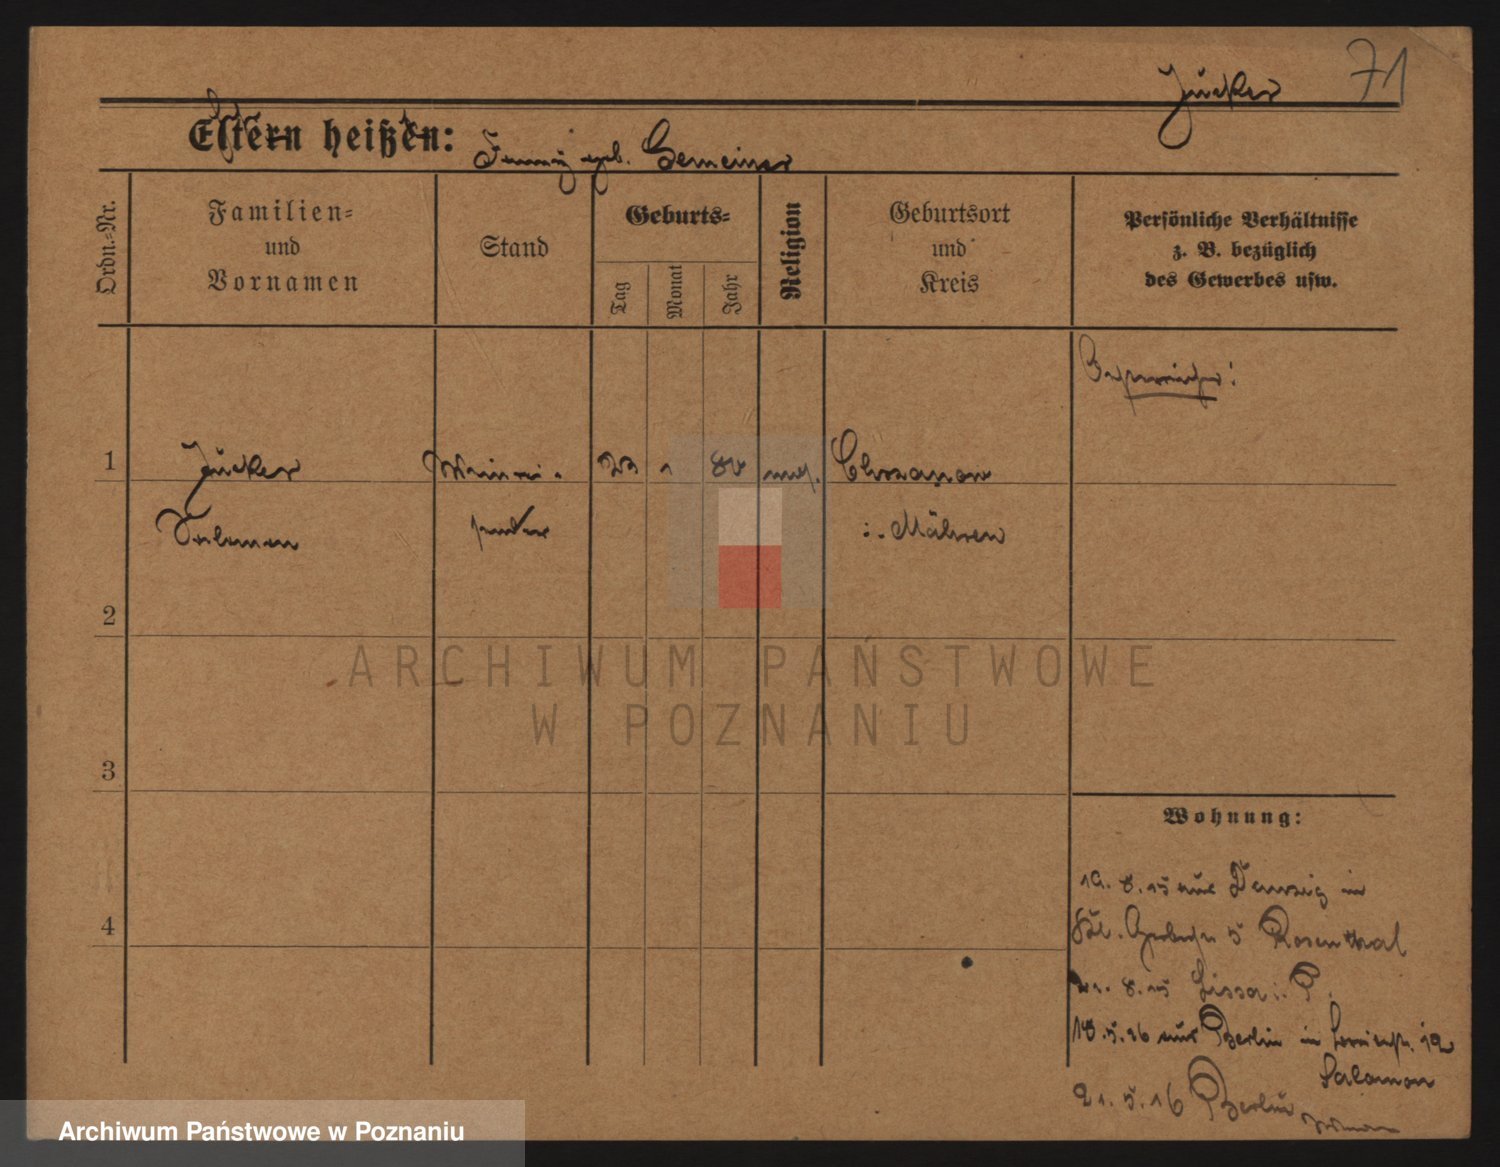 71
Jucker
Eltern heißen:
geb. Gemeiner
Ordn.-Nr.
Familien-
und
Vornamen
Stand
Geburts-
Tag
Monat
Jahr
Religion
Geburtsort
und
Kreis
Persönliche Verhältnisse
z. B. bezüglich
des Gewerbes usw.
1
Jucker
23
1
80
mos.
i. Mähren
2
3
Wohnung:
19. 8. 15 aus Danzig in
5 Rosenthal
4
21. 8. 15 Lissa i. P.
18. 5. 16 aus Berlin in
Salomon
21. 5. 16 Berlin
ARCHIWUM PAŃSTWOWE
W POZNANIU
Archiwum Państwowe w Poznaniu